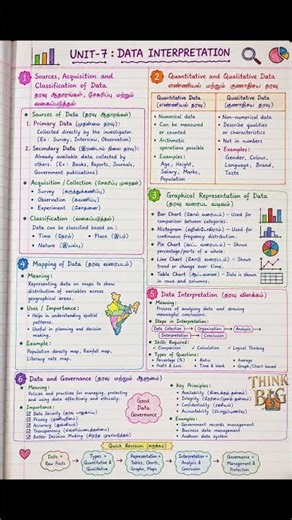 UNIT-7 : DATA INTERPRETATION
1 Sources, Acquisition and
Classification of Data
தரவு ஆதாரங்கள், சேகரிப்பு மற்றும்
வகைப்படுத்தல்
Sources of Data (தரவு ஆதாரங்கள்)
1. Primary Data (முதன்மை தரவு)
Collected directly by the investigator.
(Ex: Survey, Interview, Observation)
2. Secondary Data (இரண்டாம் நிலை தரவு)
Already available data collected
by others. (Ex: Books, Reports, Journals,
Government publications)
Acquisition / Collection (சேகரிப்பு முறைகள்)
• Survey (கருத்துக்கணிப்பு)
• Observation (கவனிப்பு)
• Experiment (சோதனை)
Classification (வகைப்படுத்தல்)
Data can be classified based on:
• Time (நேரம்) • Place (இடம்)
• Nature (இயல்பு)
2 Quantitative and Qualitative Data
எண்ணியல் மற்றும் குணாதிசய தரவு
Quantitative Data
(எண்ணியல் தரவு)
• Numerical data
• Can be measured
or counted
• Arithmetic
operations possible
• Examples:
Age, Height,
Salary, Marks,
Population
Qualitative Data
(குணாதிசய தரவு)
• Non-numerical data
• Describe qualities
or characteristics
• Not in numbers
• Examples:
Gender, Colour,
Language, Brand,
Taste
3 Graphical Representation of Data
தரவு வரைபட வடிவம்
• Bar Chart – Used for
comparison between categories.
• Histogram – Used for
continuous frequency distribution.
• Pie Chart (வட்ட வரைபடம்) – Shows
percentage/parts of a whole.
• Line Chart (கோடு வரைபடம்) – Shows
trend or change over time.
• Table Chart (அட்டவணை) – Data is shown
in rows and columns.
4 Mapping of Data (தரவு வரைபடம்)
Meaning:
Representing data on maps to show
distribution of variables across
geographical areas.
Uses / Importance:
• Helps in understanding spatial
patterns.
• Useful in planning and decision
making.
Example:
Population density map, Rainfall map,
Literacy rate map.
5 Data Interpretation (தரவு விளக்கம்)
Meaning:
Process of analysing data and drawing
meaningful conclusions.
Steps in Interpretation:
Data Collection → Organisation → Analysis
→ Interpretation → Conclusion
Skills Required:
✓ Comparison ✓ Calculation ✓ Logical Thinking
Types of Question:
• Percentage (%) • Ratio • Average
• Profit & Loss • Time & Work • Graph/Chart based
6 Data and Governance (தரவு மற்றும் ஆளுமை)
Meaning:
Policies and practices for managing, protecting
and using data effectively and ethically.
Importance:
Data Security (தரவு பாதுகாப்பு)
Privacy (தனியுரிமை)
Accuracy (துல்லியம்)
Transparency (வெளிப்படைத்தன்மை)
Better Decision Making
Good
Data
Governance
Key Principles:
• Availability
• Integrity
• Confidentiality
• Accountability
Examples:
• Government records management
• Business data management
• Aadhaar data system
THINK
BIG
Quick Revision
Data =
Raw Facts
Types =
Quantitative &
Qualitative
Representation =
Tables, Charts,
Graphs, Maps
Interpretation =
Analysis &
Conclusion
Governance =
Management &
Protection